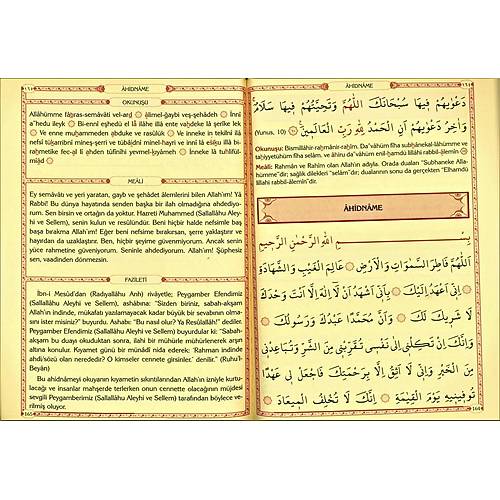 ÂHİDNÂME
دَعْوٰيهُمْ فِيهَا سُبْحَانَكَ اللّٰهُمَّ وَتَحِيَّتُهُمْ فِيهَا سَلَامٌ
وَاٰخِرُ دَعْوٰيهُمْ اَنِ الْحَمْدُ لِلّٰهِ رَبِّ الْعَالَمِينَ (Yunus, 10)
Okunuşu: Bismillâhir-rahmânir-rahîm. Da'vâhüm fîha sübhânekal-lâhümme ve
tahiyyetühüm fîha selâm, ve âhiru da'vâhüm enil-hamdü lillâhi rabbil-âlemîn
Meâli: Rahmân ve Rahîm olan Allah'ın adıyla. Orada duaları "Subhaneke Alla-
hümme"dir; sağlık dilekleri "selâm"dır; dualarının sonu da gerçekten "Elhamdü
lillâhi rabbil-âlemîn"dir.
ÂHİDNÂME
بِسْمِ اللّٰهِ الرَّحْمٰنِ الرَّحِيمِ
اَللّٰهُمَّ فَاطِرَ السَّمٰوَاتِ وَالْاَرْضِ عَالِمَ الْغَيْبِ وَالشَّهَادَةِ
اِنِّى اَعْهَدُ اِلَيْكَ بِاَنِّى اَشْهَدُ اَنْ لَا اِلٰهَ اِلَّا اَنْتَ وَحْدَكَ
لَا شَرِيكَ لَكَ وَاَنَّ مُحَمَّدًا عَبْدُكَ وَرَسُولُكَ
وَاِنَّكَ اِنْ تَكِلْنِى اِلٰى نَفْسِى تُقَرِّبْنِى مِنَ الشَّرِّ وَتُبَاعِدْنِى
مِنَ الْخَيْرِ وَاِنِّى لَا اَثِقُ اِلَّا بِرَحْمَتِكَ فَاجْعَلْ لِى عَهْدًا
تُوَفِّينِيهِ يَوْمَ الْقِيٰمَةِ اِنَّكَ لَا تُخْلِفُ الْمِيعَادَ
164
ÂHİDNÂME
OKUNUŞU
Allâhümme fâtıras-semâvâti vel-arḍ âlimel-ğaybi veş-şehâdeh İnnî
a'hedu ileyk Bi-ennî eşhedü el lâ ilâhe illâ ente vaḥdeke lâ şerîke lek
Ve enne muḥammeden abduke ve rasûlük Ve inneke in tekilnî ilâ
nefsî tüḳarribnî mineş-şerri ve tübâidnî minel-hayri ve innî lâ eŝiḳu illâ bi-
raḥmetike fec-al lî ahden tüfînîhi yevmel-ḳıyâmeh İnneke lâ tuhlifül-
mîâd
MEÂLİ
Ey semâvâtı ve yeri yaratan, gayb ve şehâdet âlemlerini bilen Allah'ım! Yâ
Rabbi! Bu dünya hayatında senden başka bir ilah olmadığına ahdediyo-
rum. Sen birsin ve ortağın da yoktur. Hazreti Muhammed (Sallallâhu Aley-
hi ve Sellem), senin kulun ve resûlündür. Beni hiçbir halde nefsimle baş
başa bırakma Allah'ım! Eğer beni nefsime bırakırsan, şerre yaklaştırır ve
hayırdan da uzaklaştırır. Ben, hiçbir şeyime güvenmiyorum. Ancak senin
yüce rahmetine güveniyorum. Seninle ahdediyorum. Allah'ım! Şüphesiz
sen, vaadinden dönmezsin.
FAZİLETİ
İbn-i Mesûd'dan (Radıyallâhu Anh) rivâyetle; Peygamber Efendimiz
(Sallallâhu Aleyhi ve Sellem), ashâbına: "Sizden biriniz, sabah-akşam
Allah'ın indinde, mükafatı yazılamayacak kadar büyük bir sevabının olma-
sını ister misiniz?" buyurdu. Ashabı: "Bu nasıl olur? Ya Resûlallah!" dediler.
Peygamber Efendimiz (Sallallâhu Aleyhi ve Sellem) buyurdular ki: "Sabah-
akşam bu duayı okuduktan sonra, ilahi bir mühürle mühürlenerek arşın
altına konulur. Kıyamet günü bir münâdi nida ederek: 'Rahman indinde
ahdi/sözü olan nerededir? O kimseler cennete girsinler.' denilir." (Ruhu'l-
Beyân)
Bu ahidnâmeyi okuyanın kıyametin sıkıntılarından Allah'ın izniyle kurtu-
lacağı ve insanlar mahşerde terlerken onun cennette olacağının müjdesi
sevgili Peygamberimiz (Sallallâhu Aleyhi ve Sellem) tarafından böylece ve-
rilmiş oluyor.
165